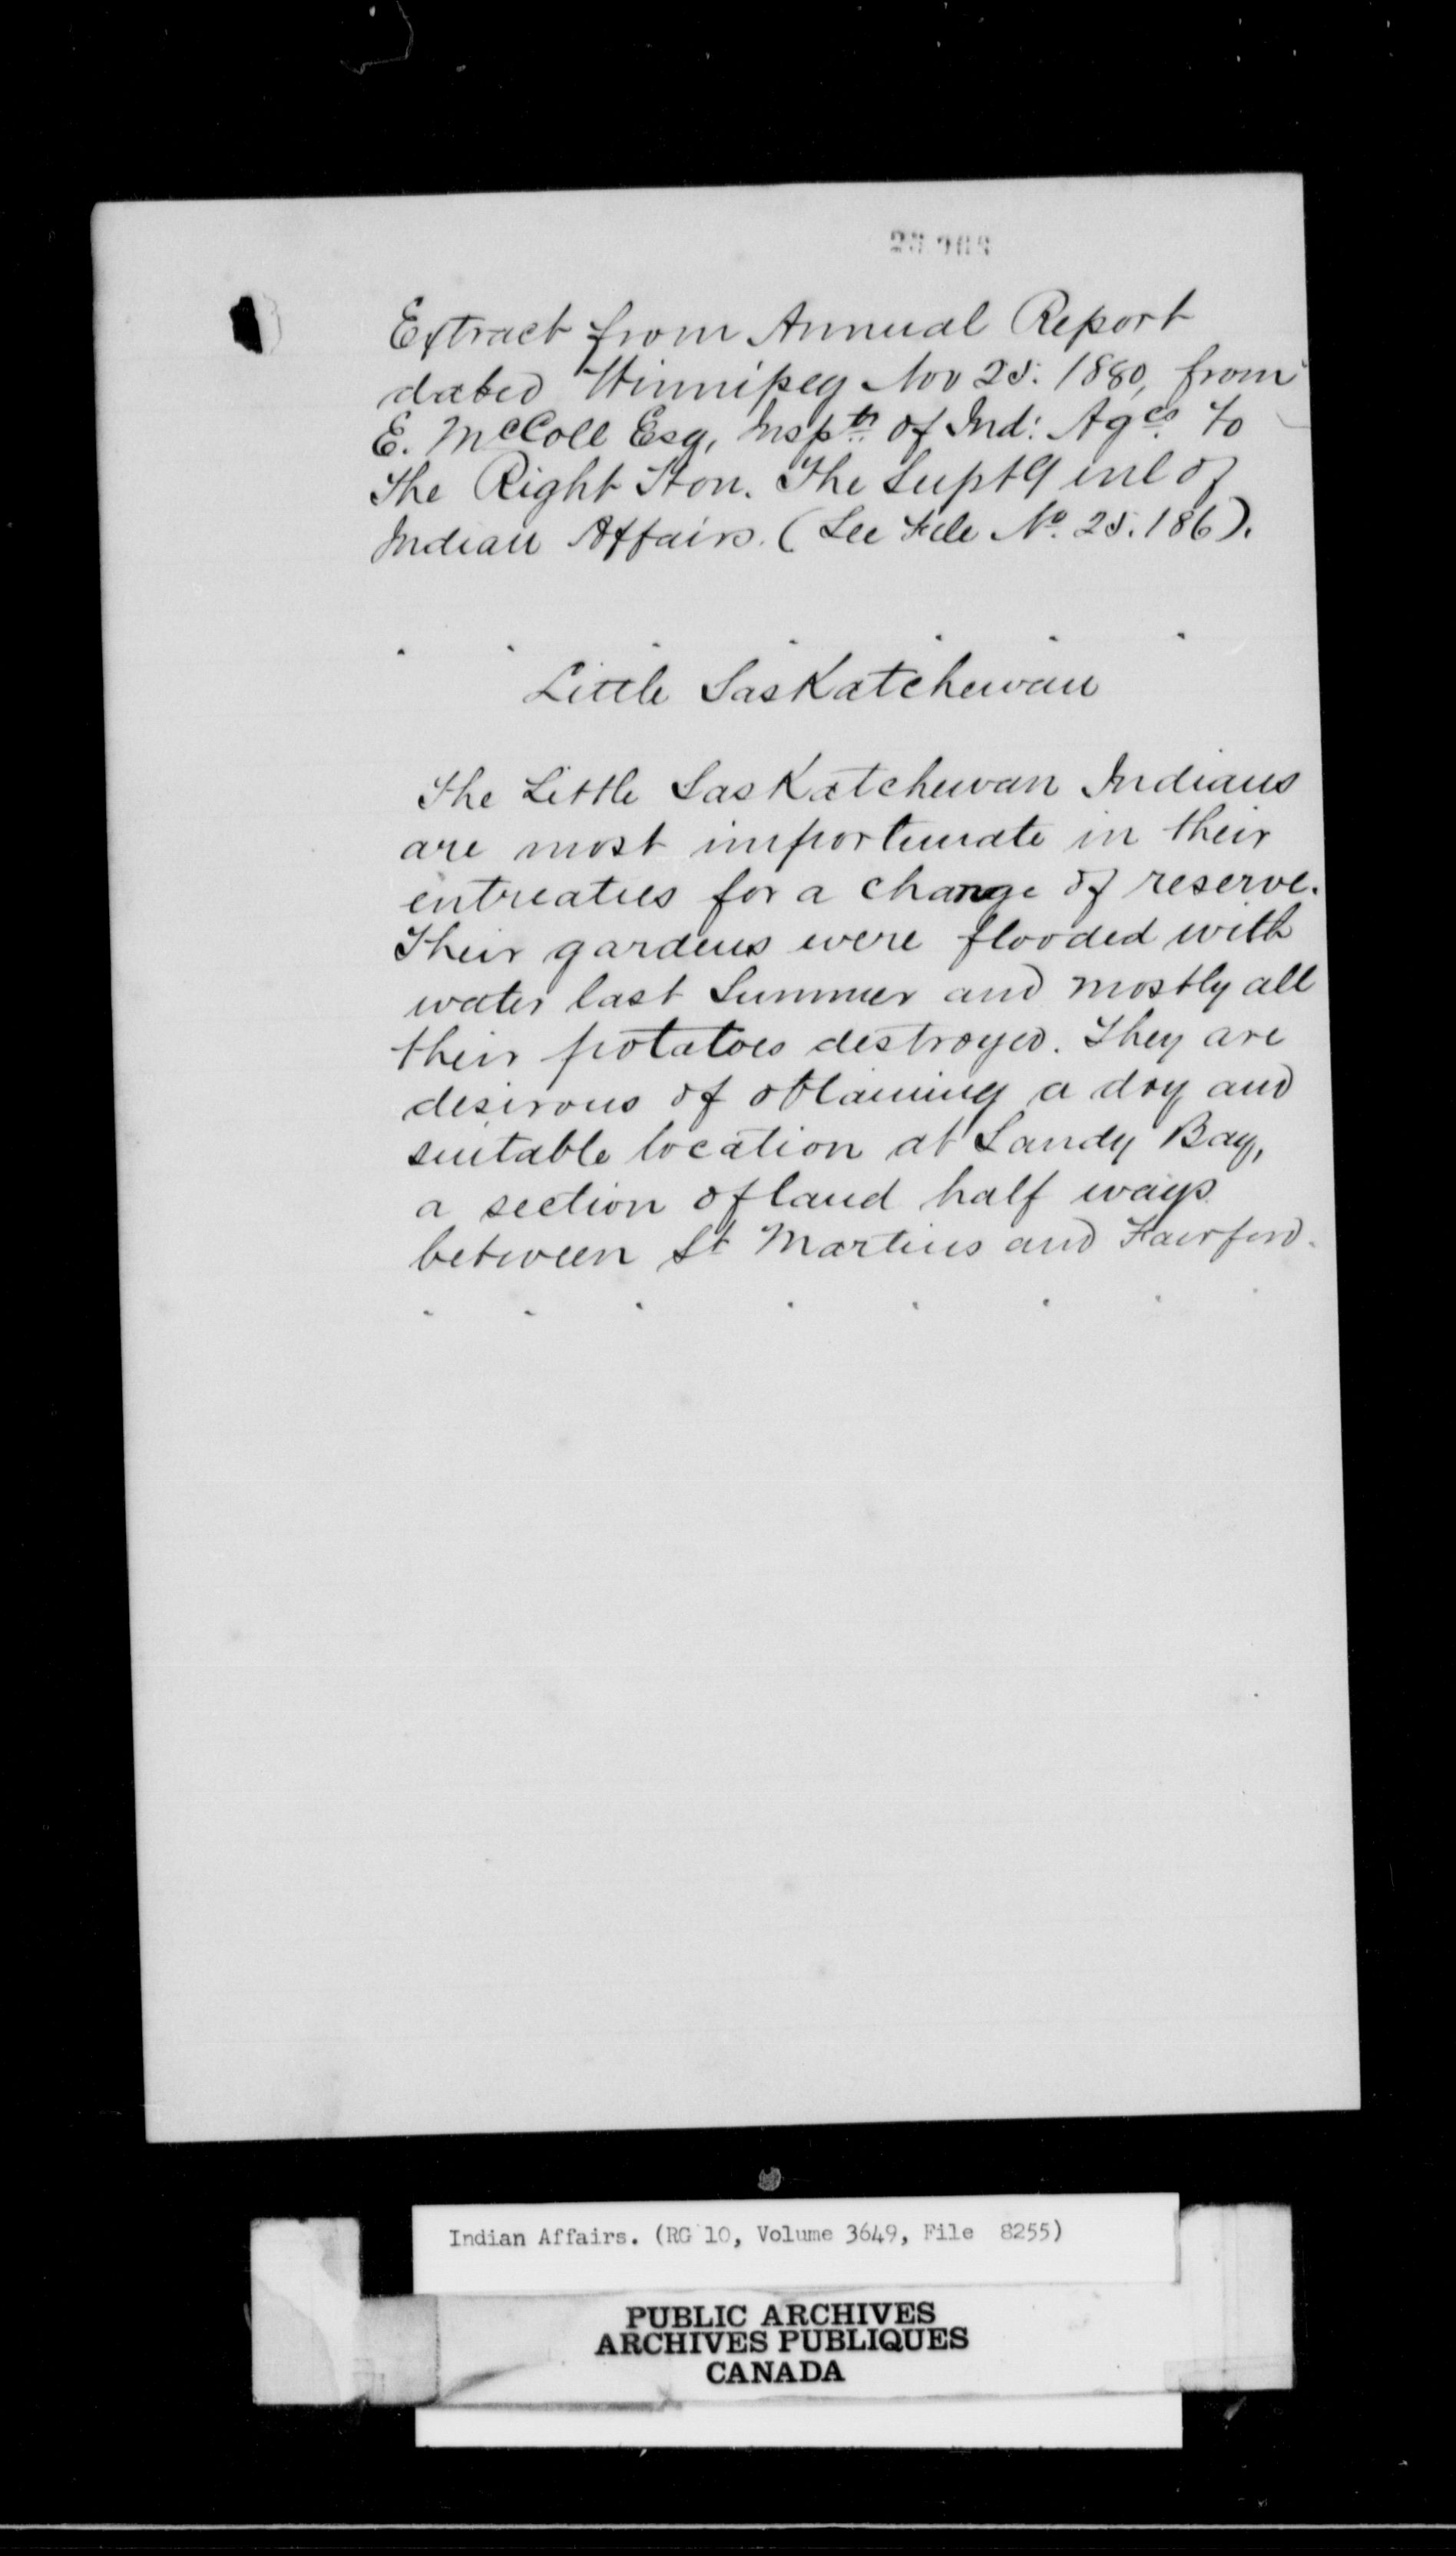 Extract from Annual Report
dated Winnipeg Nov 25. 1880, from
E. McColl Esq, Insptr of Ind: Agcs to
The Right Hon. The Supt Genl of
Indian Affairs. (See File No. 25.186).
Little Saskatchewan
The Little Saskatchewan Indians
are most importunate in their
entreaties for a change of reserve.
Their gardens were flooded with
water last Summer and mostly all
their potatoes destroyed. They are
desirous of obtaining a dry and
suitable location at Sandy Bay,
a section of land half ways
between St Martins and Fairford.
Indian Affairs. (RG 10, Volume 3649, File 8255)
PUBLIC ARCHIVES
ARCHIVES PUBLIQUES
CANADA